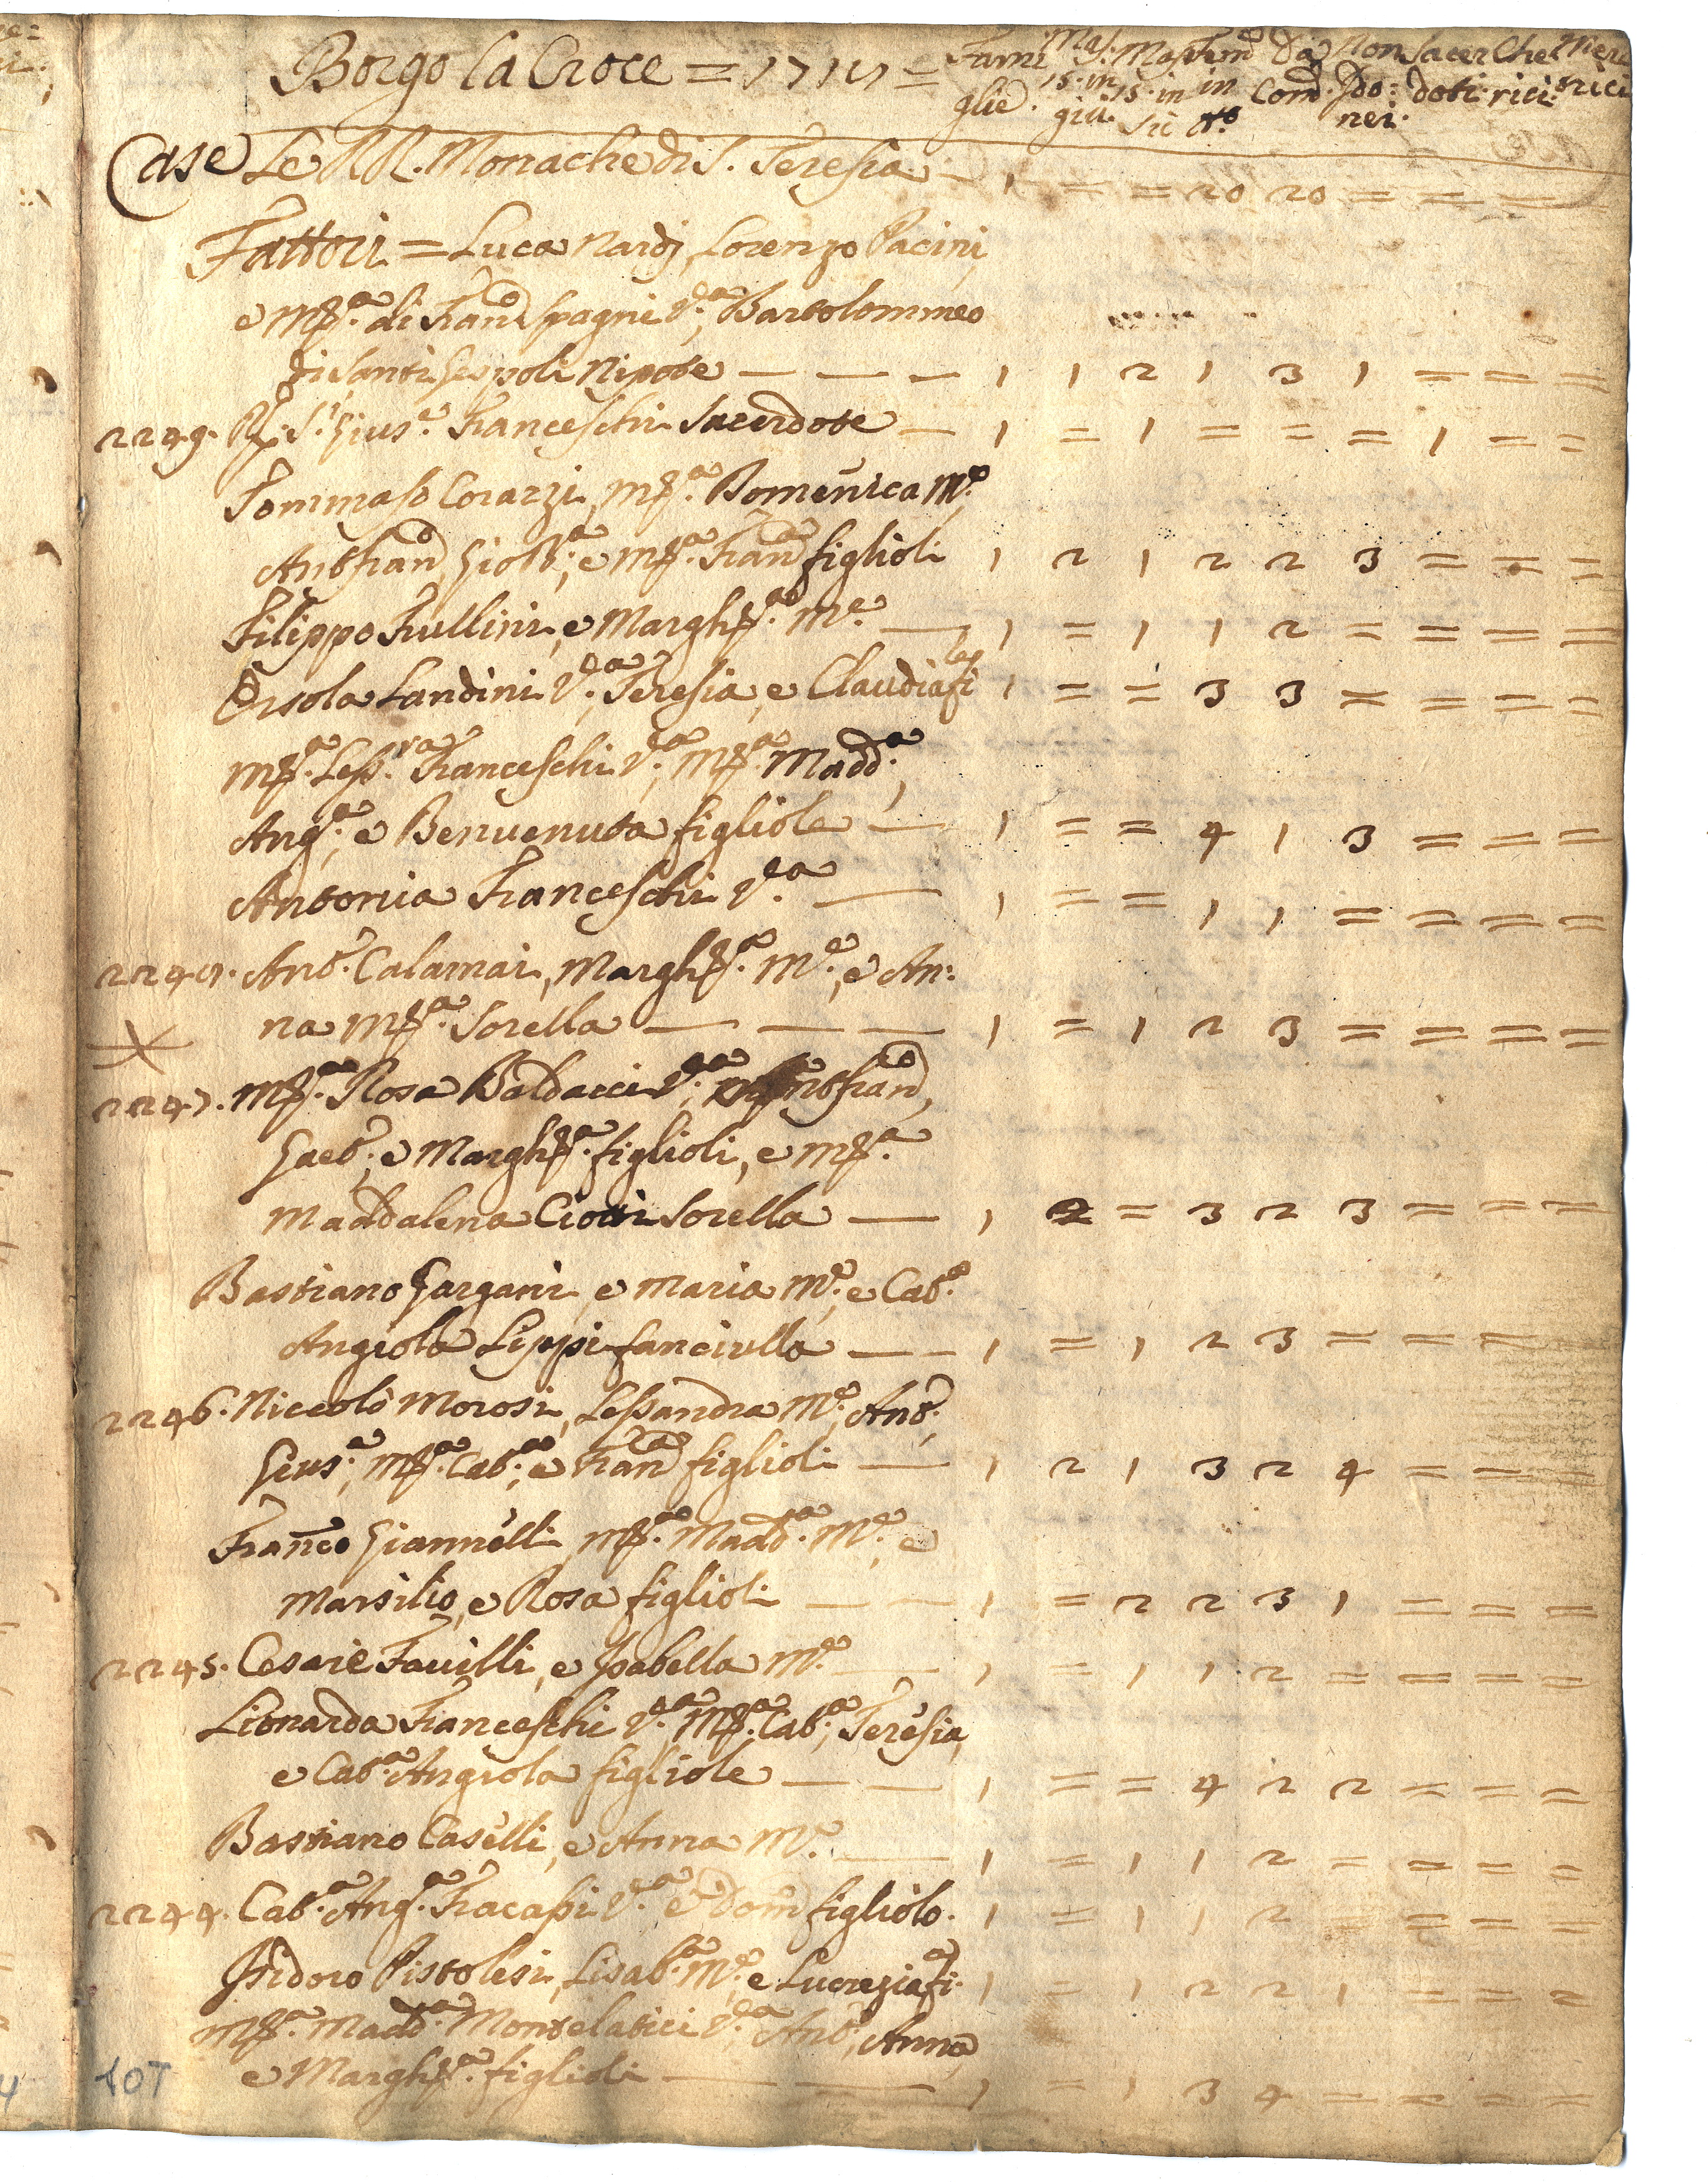 Borgo la Croce = 1717 = Fami glie. Mas. 15. in giù. Mas. 15. in sù Fem. in N.º Da Com. Non Ido: nei. Sacer doti. Che rici. 
Case Le RR. Monache di S. Teresia — 1 = = 20 20 = = = =
Fattori = Luca Nardj, Lorenzo Pacini,
e Mª. di Fran.co Spagni V.da, Bartolommeo
di Santi Gespoli Nipote — — — 1 1 2 1 3 1 = = =
2249. R. S.r Gius.e Franceschi Sacerdote — 1 = 1 = = = 1 = =
Tommaso Corazzi, Mª. Domenica M.e
Ant.º Fran.co, Gio: Bª., e Mª. Fran.ca figlioli 1 2 1 2 2 3 = = =
Filippo Frullini, e Margh.ta M.e — 1 = 1 1 2 = = = =
Orsola Landini V.da, Teresia, e Claudia fi.le 1 = = 3 3 = = = =
Mª. Less.ra Franceschi V.da, Mª. Madd.a,
Ang.a, e Benvenuta figliole — 1 = = 4 1 3 = = =
Antonia Franceschi V.da — 1 = = 1 1 = = = =
2248. Ant.º Calamai, Margh.ta M.e, e An:
na Mª. Sorella — — — 1 = 1 2 3 = = = =
2247. Mª. Rosa Baldacci V.da, Ant.º Fran.co,
Gaet.º, e Margh.ta figlioli, e Mª.
Maddalena Ciotti Sorella — 1 2 = 3 2 3 = = =
Bastiano Gargani, e Maria M.e, e Cat.a
Angiola Lippi fanciulla — — 1 = 1 2 3 = = = =
2246. Niccolò Morosi, Lessandra M.e, Ant.º,
Gius.a, Mª. Cat.a, e Fran.ca figlioli — 1 2 1 3 2 4 = = =
Franco Giannelli, Mª. Madd.a M.e, e
Marsilio, e Rosa figlioli — — 1 = 2 2 3 1 = = =
2245. Cesare Favilli, e Isabella M.e — 1 = 1 1 2 = = = =
Lionarda Franceschi V.da, Mª. Cat.a, Teresia,
e Cat.a Angiola figliole — — 1 = = 4 2 2 = = =
Bastiano Caselli, e Anna M.e — 1 = 1 1 2 = = = =
2244. Cat.a Ang.a Fracassi V.da e Dom.co figliolo. 1 = 1 1 2 = = = =
Isidoro Pistolesi, Lisab.a M.e, e Lucrezia fi.a 1 = 1 2 2 1 = = =
Mª. Madd.a Montelatici V.da, Ant.º, Anna,
e Margh.ta figlioli — — 1 = 1 3 4 = = = =
107